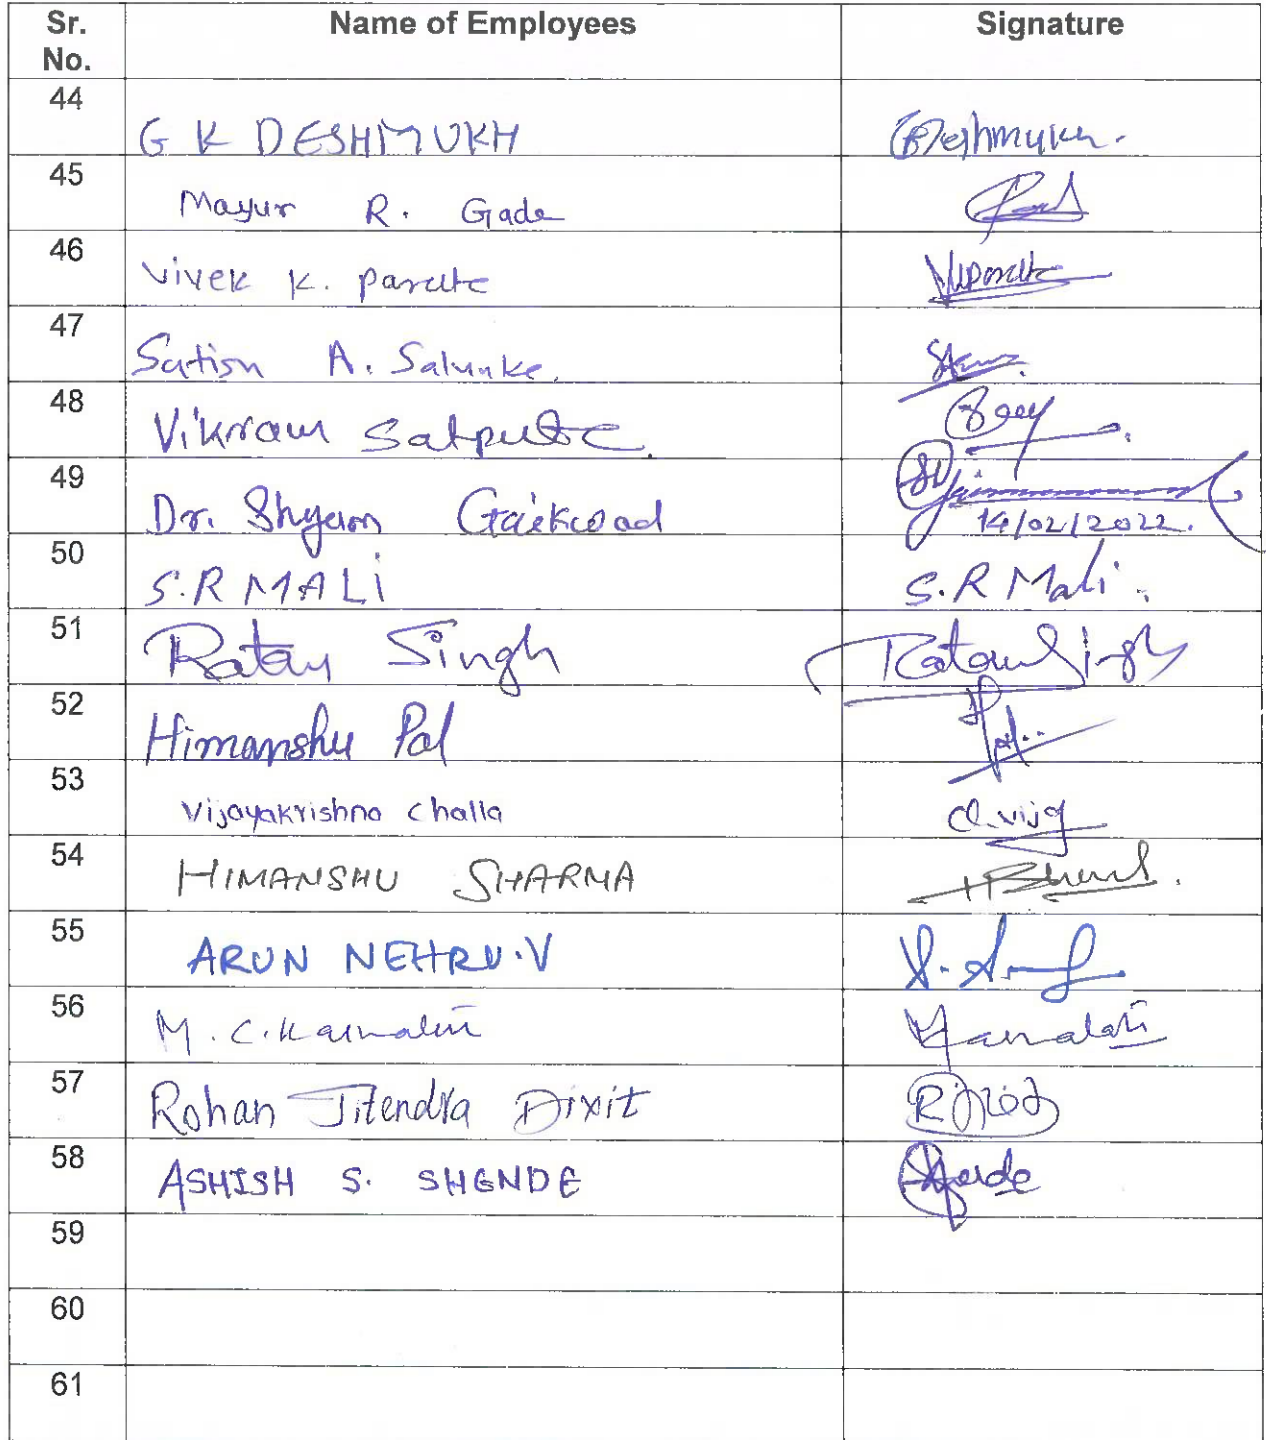 Sr. No. Name of Employees Signature
44 G K DESHMUKH GDeshmukh.
45 Mayur R. Gade
46 Vivek K. Parate VKParate
47 Satish A. Salunke.
48 Vikram Satpute.
49 Dr. Shyam Gaikwad
14/02/2022.
50 S.R MALI S.R Mali.
51 Ratan Singh Ratan Singh
52 Himanshu Pal
53 Vijayakrishna Challa Ch.vijay
54 HIMANSHU SHARMA
55 ARUN NEHRU.V
56 M.C.
57 Rohan Jitendra Dixit
58 ASHISH S. SHENDE
59
60
61